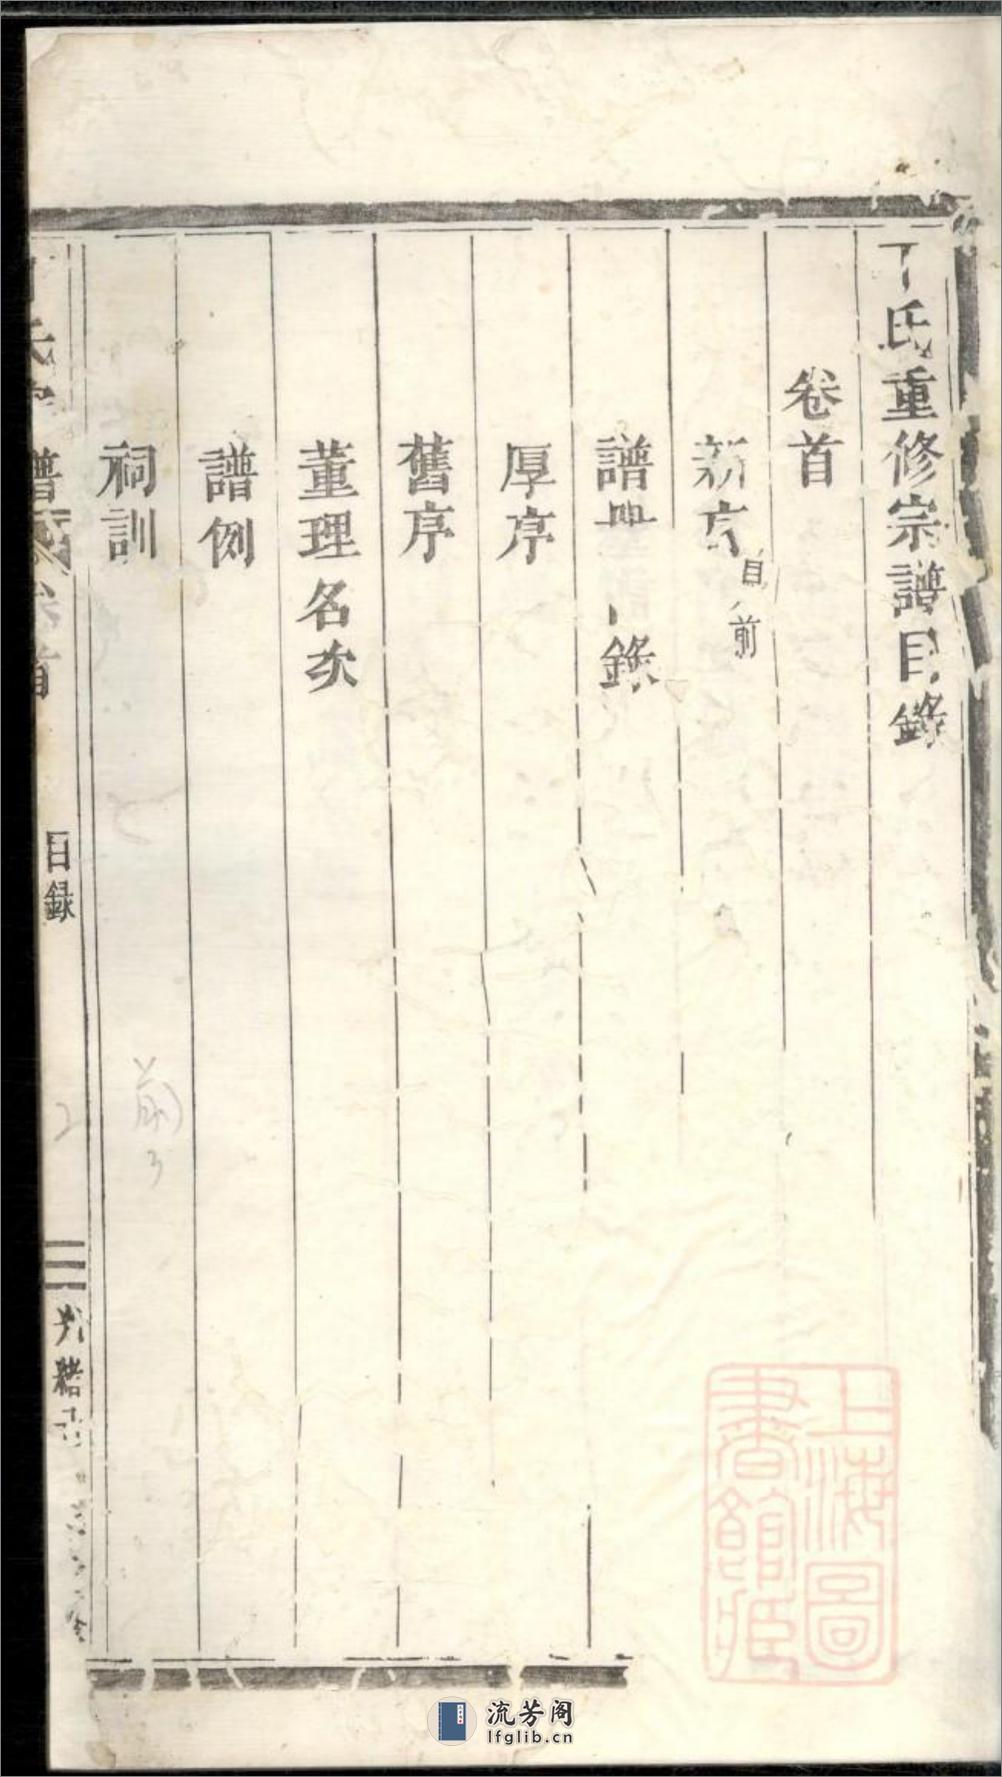 丁氏重修宗譜目錄
卷首
新序 目前
譜 錄
厚序
舊序
董理名次
譜例
祠訓
氏宗譜 卷首
目録
二
光緒
前
3
2
上海圖
書館藏
流芳阁
lfglib.cn